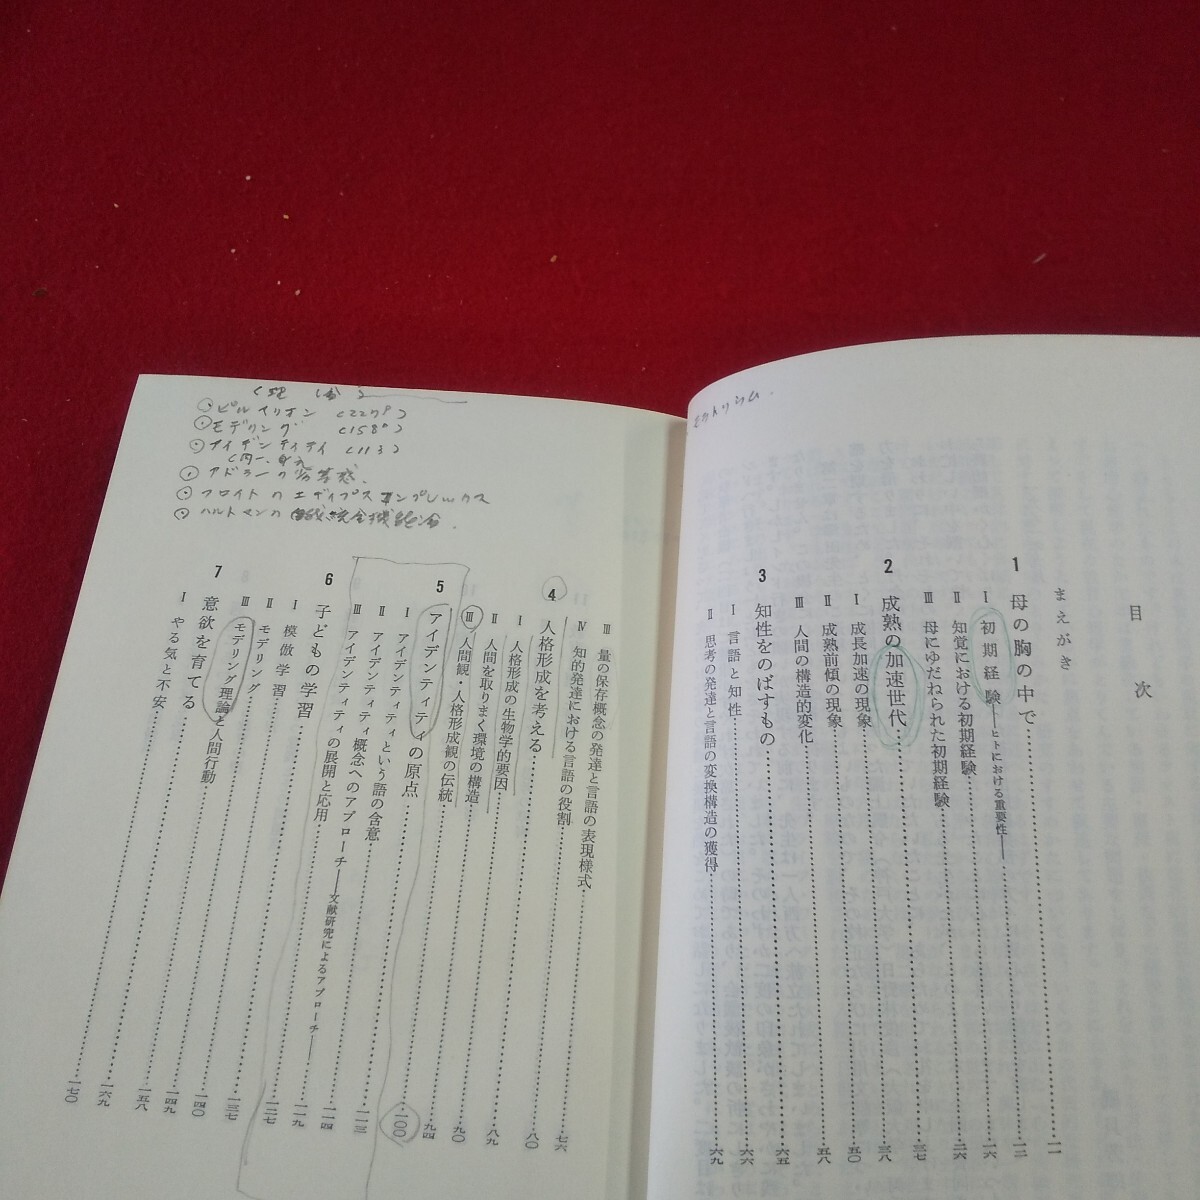 目次
まえがき
1 母の胸の中で……一一
Ⅰ 初期経験――ヒトにおける重要性――……一二
Ⅱ 知覚における初期経験……一六
Ⅲ 母にゆだねられた初期経験……二六
2 成熟の加速世代……三七
Ⅰ 成長加速の現象……三八
Ⅱ 成熟前傾の現象……五〇
Ⅲ 人間の構造的変化……五八
3 知性をのばすもの……六五
Ⅰ 言語と知性……六六
Ⅱ 思考の発達と言語の変換構造の獲得……六九
モデリング (158P)
アイデンティティ (113)
アドラーの劣等感.
フロイトのエディプスコンプレックス
Ⅲ 量の保存概念の発達と言語の表現様式……七六
Ⅳ 知的発達における言語の役割……八〇
4 人格形成を考える……八九
Ⅰ 人格形成の生物学的要因……九〇
Ⅱ 人間を取りまく環境の構造……九四
Ⅲ 人間観・人格形成観の伝統……一〇〇
5 アイデンティティの原点……一一三
Ⅰ アイデンティティという語の含意……一一四
Ⅱ アイデンティティ概念へのアプローチ――文献研究によるアプローチ――……一一九
Ⅲ アイデンティティの展開と応用……一二七
6 子どもの学習……一三七
Ⅰ 模倣学習……一四〇
Ⅱ モデリング……一四九
Ⅲ モデリング理論と人間行動……一五八
7 意欲を育てる……一六九
Ⅰ やる気と不安……一七〇